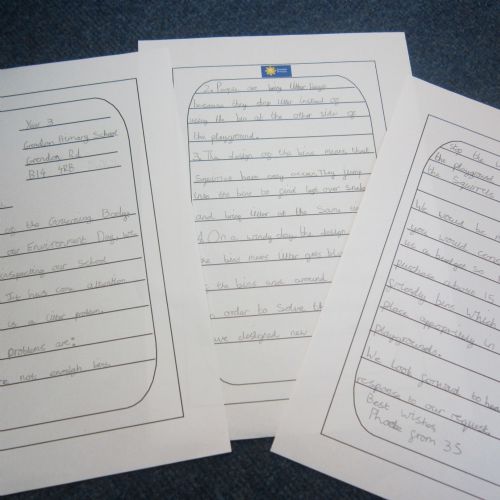 Year 3
Grendon Primary School
Grendon Rd
B14 4RB
of the Governing Body
our Environment Day, we
inspecting our school
It has come attention
is a litter problem.
problems are:
not enough bins
2. People are being litter bugs
because they drop litter instead of
using the bin at the other sides of
the playground.
3. The design of the bins means that
Squirrels have easy access. They jump
into the bins to find left over snacks
and bring litter at the same
4. On a windy day the design
bins means litter goes
the bins and around
order to solve
we designed new
the playground
the squirrels
We would be
you would
us a budget so
purchase
bins which
place in
playgrounds.
We look forward to
response to our request.
Best wishes
Phoebe from 3S